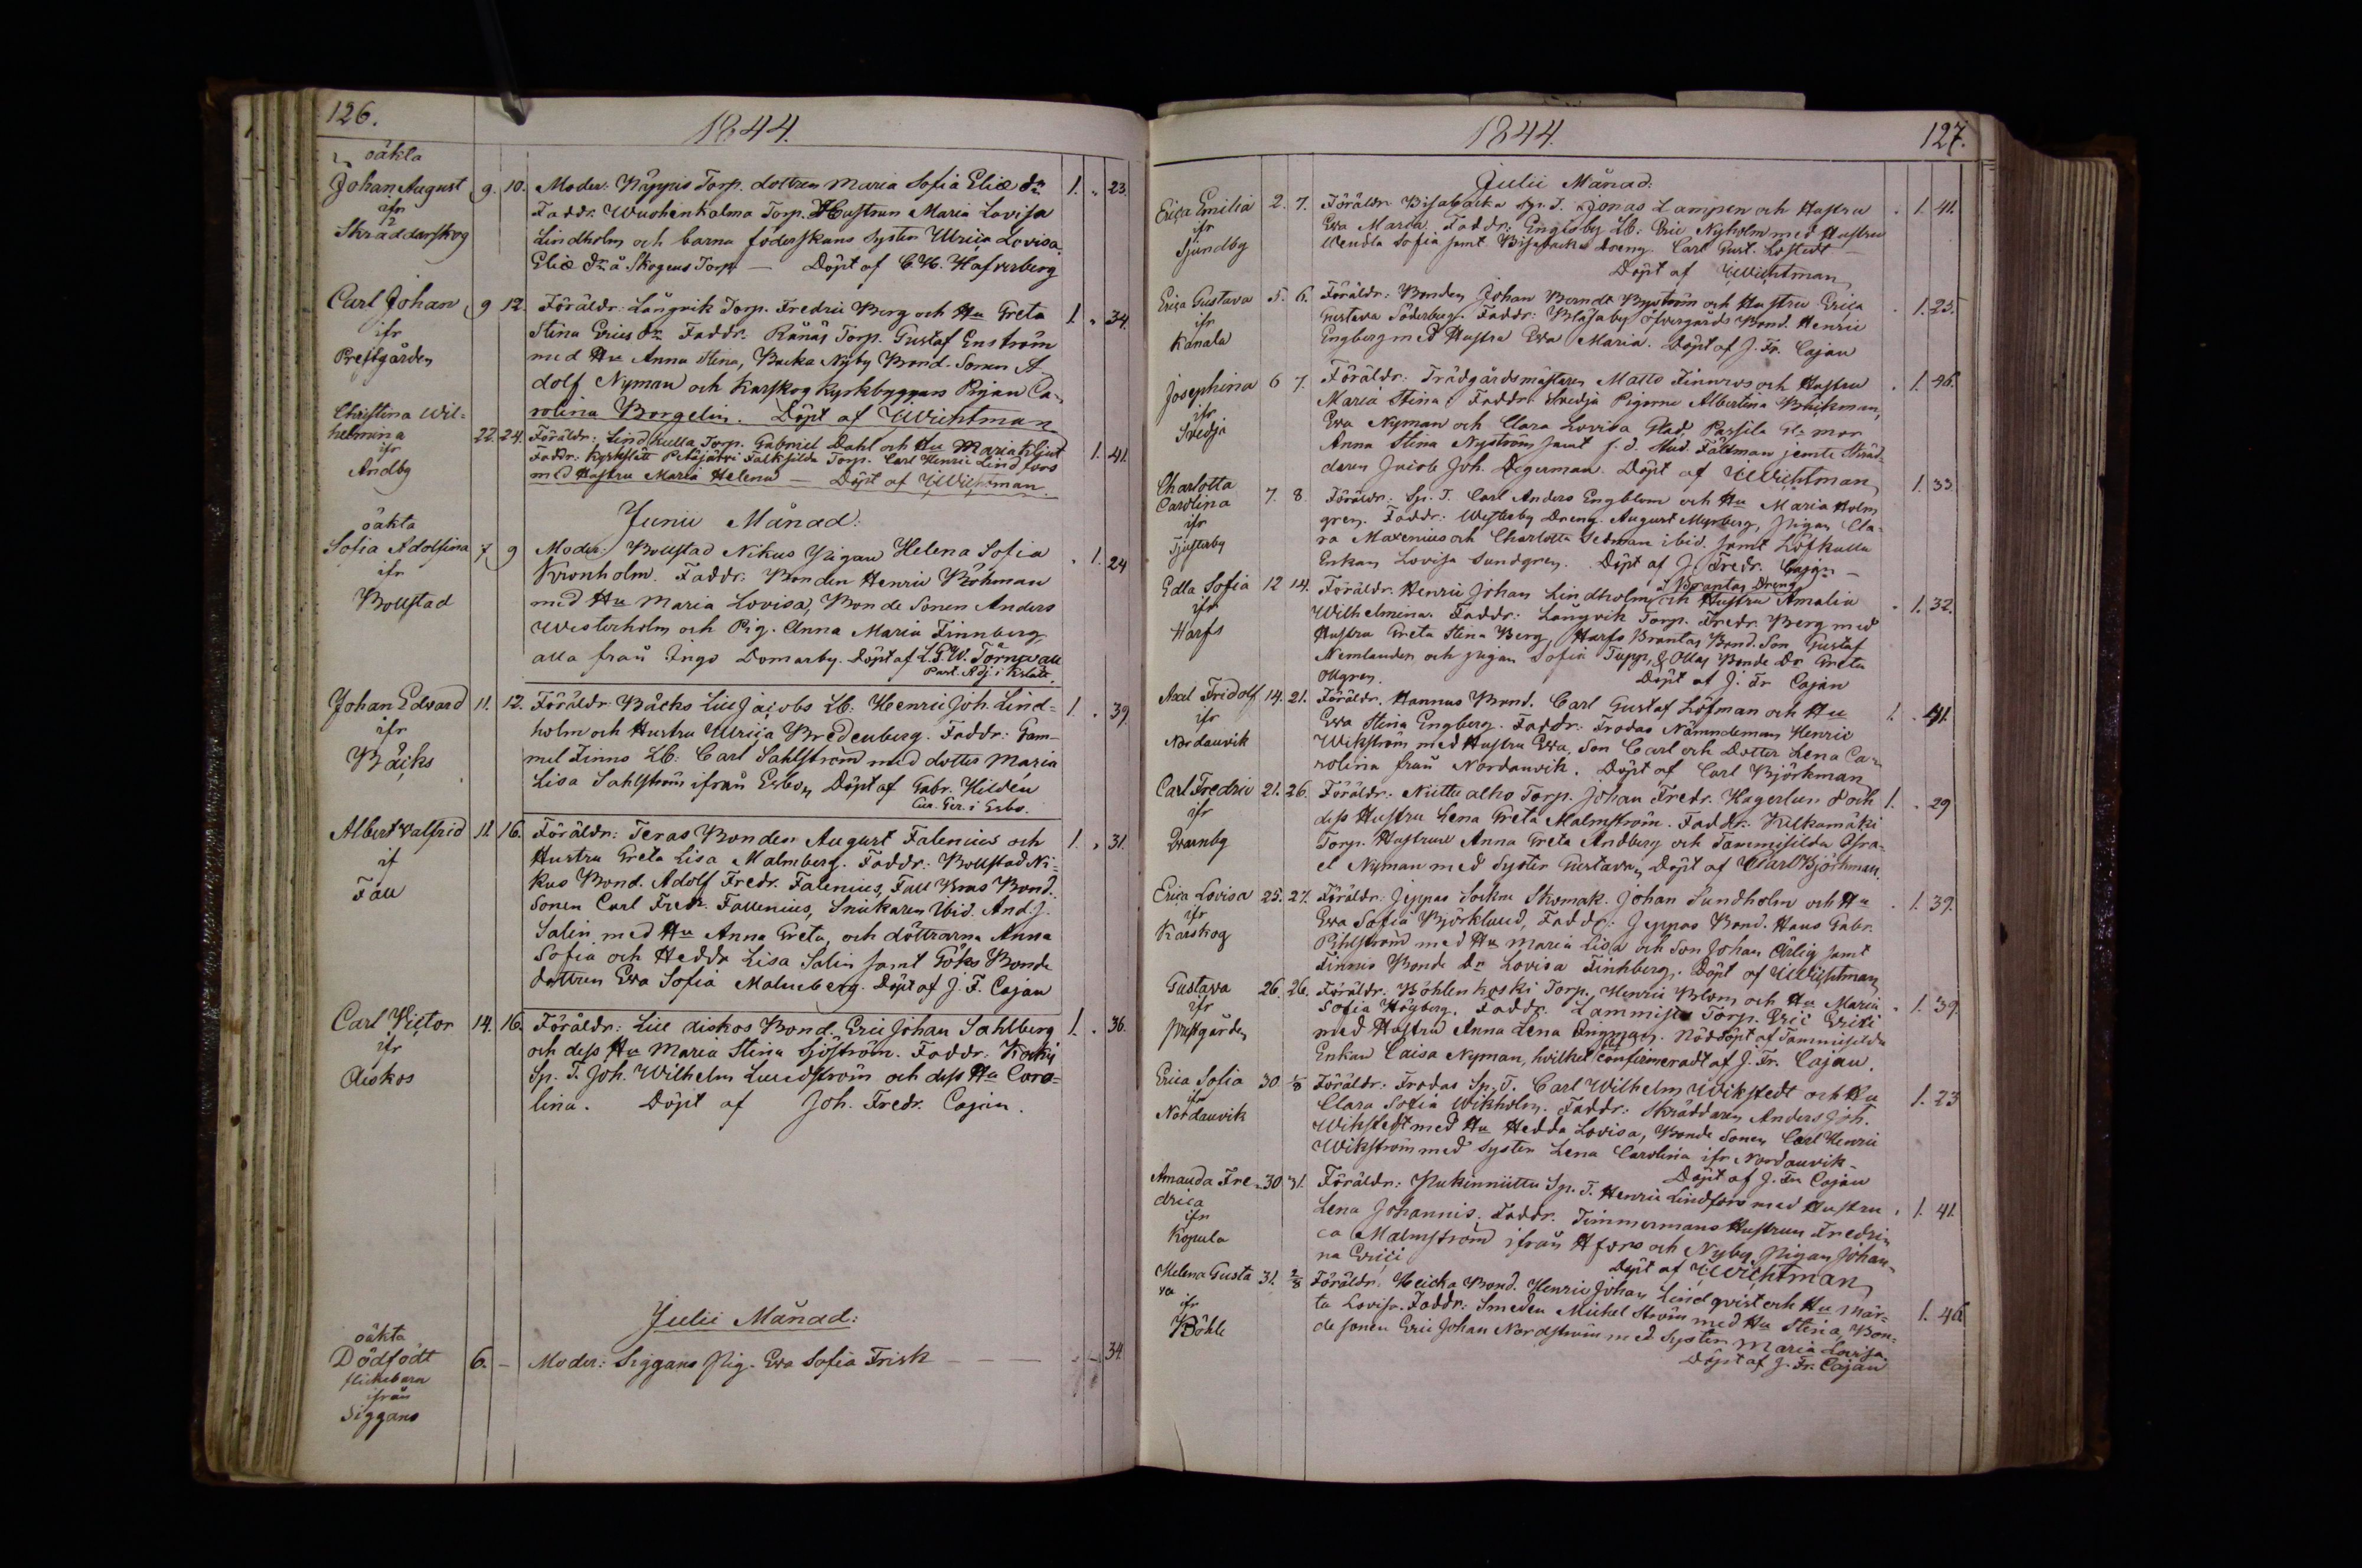 126.
1844.
oäkta
Johan August 9. 10. Moder: Näppis Torp. dottren Maria Sofia Eliæ dr 1. " 23.
ifr Faddr. Wuohenkalma Torp. Hustrun Maria Lovisa
Skräddarskog Lindholm och barna föderskans syster Ulrica Lovisa
Eliæ dr å Skogens Torp — Döpt af C. H. Hafverberg
Carl Johan 9 12. Föräldr: Långvik Torp. Fredric Berg och Hu Greta 1. " 34.
ifr Stina Erics dr Faddr. Rånäs Torp. Gustaf Enström
Prestgården med Hu Anna Stina, Backa Nyby Bond. Sonen A
dolf Nyman och Karskog Kyrkbyggars Pigan Ca-
rolina Borgelin. Döpt af Wichtman
Christina Wil-
helmina 22. 24. Föräldr: Lindkulla Torp. Gabriel Dahl och Hu Maria 1. 41.
ifr Faddr: Kyrkslätt Petäjärvi Falksilda Torp. Carl Henric Lindfors
Andby med Hustru Maria Helena — Döpt af Wichtman.
Junii Månad:
oäkta
Sofia Adolfina 7. 9 Moder: Bollstad Nikus Pigan Helena Sofia . 1. 24
ifr Kronholm. Faddr: Bonden Henric Böhman
Bollstad med Hu Maria Lovisa, Bonde Sonen Anders
Westerholm och Pig. Anna Maria Finnberg
alla från Ingo Domarby. Döpt af L. G. W. Törnwall
Past. Adj. i Kslätt.
Johan Edvard 11. 12. Föräldr. Bäcks Lill Jacobs Lb: Henric Joh. Lind- 1. . 39
ifr holm och Hustru Ulrica Bredenberg. Faddr: Gam-
Bäcks mel Finns Lb: Carl Sahlström med dotter Maria
Lisa Sahlström ifrån Esbo, Döpt af Gabr. Hildén
i Esbo.
Albert Valfrid 11. 16. Föräldr: Teras Bonden August Falenius och 1. " 31.
if Hustru Greta Lisa Malmberg. Faddr: Bollstad Ni-
Fall kus Bond. Adolf Fredr. Falenius, Fall Bond.
Sonen Carl Fredr. Fallenius, Snickaren Ibid. And. J.
Salin med Hu Anna Greta, och döttrarna Anna
Sofia och Hedda Lisa Salin samt Göks Bonde
dottren Eva Sofia Malmberg. Döpt af J. F. Cajan
Carl Victor 14. 16. Föräldr: Lill diskos Bond. Eric Johan Sahlberg 1. . 36.
ifr och dess Hu Maria Stina Sjöström. Faddr: Kocki
Diskos Sp. T. Joh. Wilhelm Lundström och dess Hu Caro-
lina. Döpt af Joh. Fredr. Cajan.
Julii Månad:
oäkta
Dödfödt 6. — Moder: Siggans Pig. Eva Sofia Frisk — — — 34.
flickebarn
ifrån
Siggans
1844.
127.
Julii Månad:
Erica Emilia 2. 7. Föräldr. Bisabacka Sp. T. Jonas Lampen och Hustru . 1. 41.
ifr Eva Maria. Faddr: Engisby Lb: Eric Nyholm med Hustru
Sjundby Wendla Sofia samt Bisabacka Dreng. Carl Gust. Löfstedt —
Döpt af Wichtman
Erica Gustava 5. 6. Föräldr: Bonden Johan Berndt Byström och Hustru Erica . 1. 25.
ifr Gustava Söderberg. Faddr: Blåsaby Öfvergårds Bond. Henric
Kanala Engberg med Hustru Eva Maria. Döpt af J. Fr. Cajan
Josephina 6 7. Föräldr: Trädgårdsmästaren Matts Finnros och Hustru . 1. 46.
ifr Maria Stina. Faddr. Svedja Pigorne Albertina Blickman,
Svedja Eva Nyman och Clara Lovisa Glad, Passila Gl: mor
Anna Stina Nyström samt f. d. Stud. Fältman jemte Skräd-
daren Jacob Joh. Degerman. Döpt af Wichtman
Charlotta
Carolina 7. 8. Föräldr: Sp. T. Carl Anders Engblom och Hu Maria Holm 1. 33.
ifr gren. Faddr: Westerby Dreng. August Myrberg, Pigan Cla-
Tjusterby ra Maxenius och Charlotta Sedman ibid. samt Löfkulla
Enkan Lovisa Sundgren. Döpt af J. Fredr. Cajan —
å Brantas Dreng
Edla Sofia 12 14. Föräldr. Henric Johan Lindholm och Hustru Amalia . 1. 32.
ifr Wilhelmina. Faddr: Långvik Torp. Fredr. Berg med
Harfs Hustru Greta Stina Berg, Harfs Brantas Bond. Son Gustaf
Nemlander och pigan Sofia Tupp, & Ollas Bonde Dr Greta
Ollgren. Döpt af J. Fr Cajan
Axel Fridolf 14. 21. Föräldr. Hannus Bond. Carl Gustaf Löfman och Hu 1. . 41.
ifr Eva Stina Engberg. Faddr: Frodas Nämndeman Henric
Nordanvik Wikström med Hustru Eva, Son Carl och Dotter Lena Ca-
rolina från Nordanvik. Döpt af Carl Björkman
Carl Fredric 21. 26. Föräldr: Niittu alho Torp. Johan Fredr. Hagerlund och 1. . 29
ifr dess Hustru Lena Greta Malmström. Faddr: Kilkamäki
Qvarnby Torp. Hustrun Anna Greta Andberg och Tammisilda Isra-
el Nyman med Syster Gustava, Döpt af Carl Björkman.
Erica Lovisa 25. 27. Föräldr: Jeppas Sockne Skomak. Johan Sundholm och Hu . 1. 39.
ifr Eva Sofia Björklund, Faddr: Jeppas Bond. Hans Gabr.
Karskog Pihlström med Hu Maria Lisa och Son Johan Ärlig samt
Finnis Bonde Dr Lovisa Finnberg. Döpt af Wichtman
Gustava 26. 26. Föräldr. Böhlenkoski Torp. Henric Blom och Hu Maria . 1. 39.
ifr Sofia Högberg. Faddr. Lammista Torp. Eric Erici
prestgården med Hustru Anna Lena Engman. Nöddöpt af Tammisilda
Enkan Caisa Nyman, hvilket confirmeradt af J. Fr. Cajan.
Erica Sofia 30 1/8 Föräldr: Frodas Sp. T. Carl Wilhelm Wikstedt och Hu 1. 23
ifr Clara Sofia Wikholm. Faddr: Skräddaren Anders Joh.
Nordanvik Wikstedt med Hu Hedda Lovisa, Bonde Sonen Carl Henric
Wikström med Syster Lena Carolina ifr Nordanvik —
Döpt af J. Fr. Cajan
Amanda Fre- 30 31. Föräldr: Pukinniittu Sp. T. Henric Lindfors med Hustru . 1. 41.
drica Lena Johannis. Faddr. Timmermans Hustrun Fredri-
ifr ca Malmström ifrån Hfors och Nyby Pigan Johan-
Kopula na Erici Döpt af Wichtman
Helena Gusta 31. 2/8 Föräldr: Heicka Bond. Henric Johan Lindqvist och Hu Mär- 1. 46.
va ta Lovisa. Faddr: Smeden Michel Ström med Hu Stina, Bon-
ifr de sonen Eric Johan Nordström med Syster Maria Lovisa.
Böhle Döpt af J. Fr. Cajan